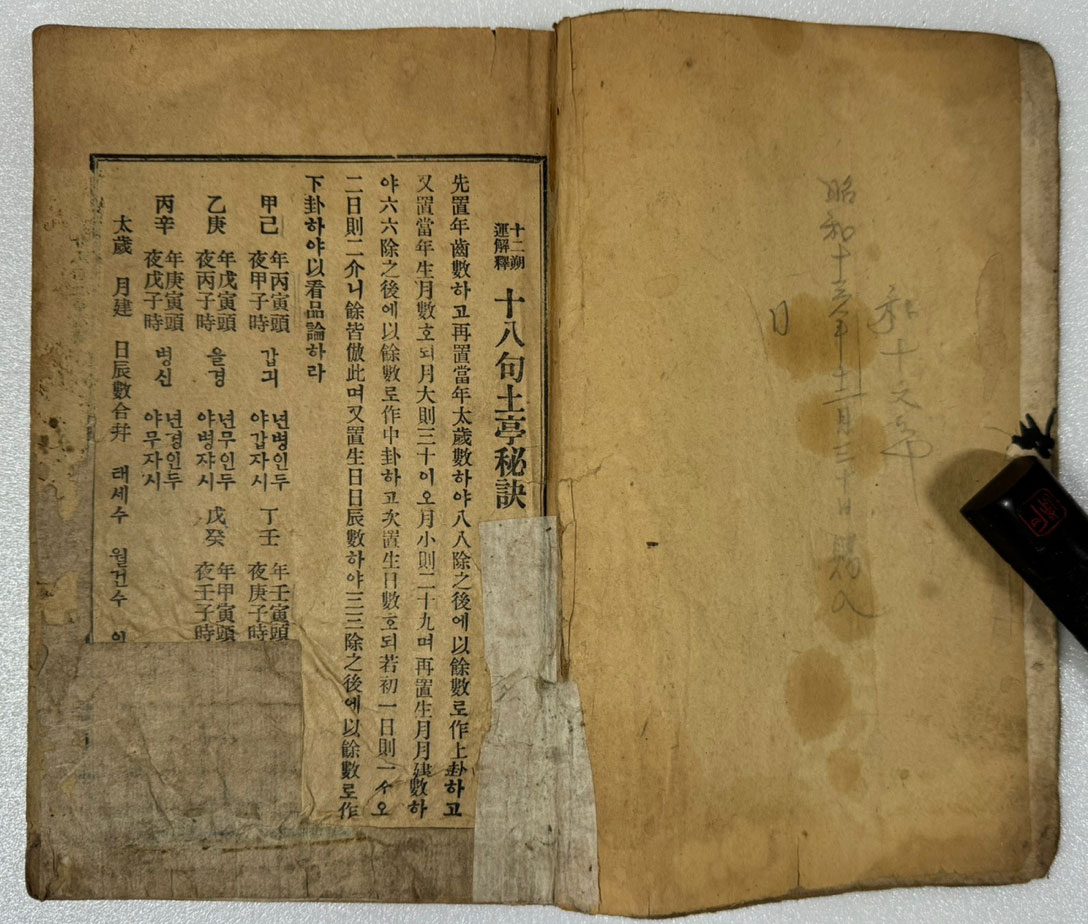 昭和十 年十二月三十日
日
十二朔
運解釋
十八句土亭秘訣
先置年齒數하고再置當年太歲數하야八八除之後에以餘數로作上卦하고
又置當年生月數호되月大則三十이오月小則二十九며再置生月月建數하
야六六除之後에以餘數로作中卦하고次置生日數호되若初一日則一个오
二日則二介니餘皆倣此며又置生日日辰數하야三三除之後에以餘數로作
下卦하야以看品論하라
甲己 年丙寅頭 夜甲子時 갑긔 년병인두 야갑자시 丁壬 年壬寅頭 夜庚子時
乙庚 年戊寅頭 夜丙子時 을경 년무인두 야병쟈시 戊癸 年甲寅頭 夜壬子時
丙辛 年庚寅頭 夜戊子時 병신 년경인두 야무자시
太歲 月建 日辰數合幷 래세수 월건수